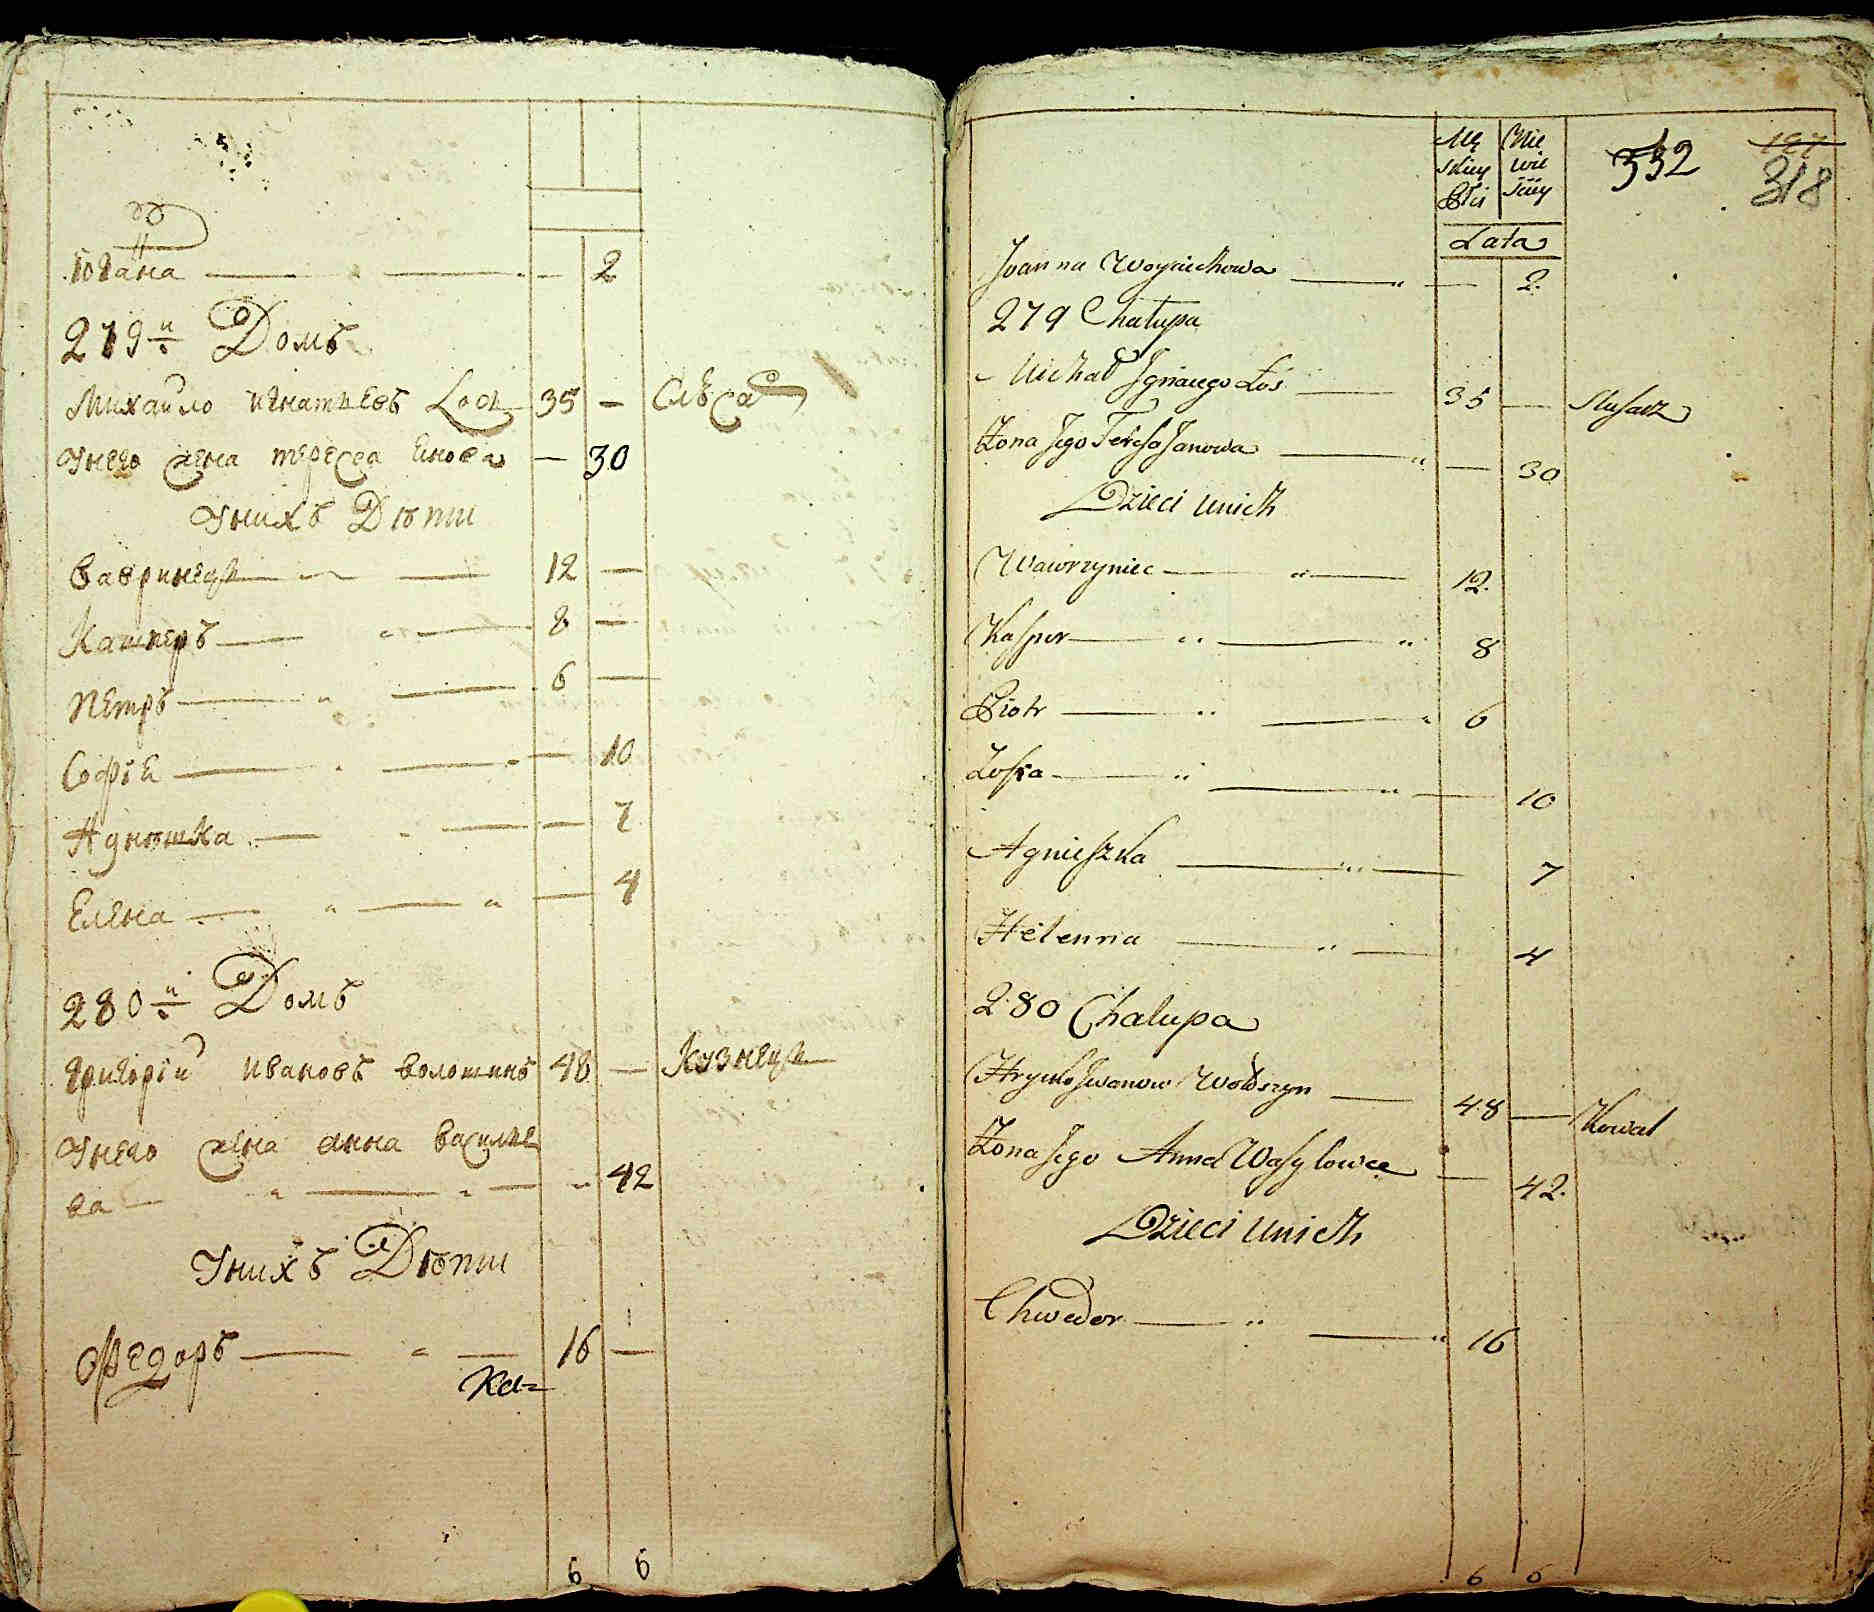 Югана — " — — 2
279й Домъ
Михайло игнатьевъ Лось 35 — Слѣса
Унего жена тересса Енова — 30
Унихъ Дѣти
Вавринецъ — — 12 —
Кашперъ — " — 8 —
Петръ — " — 6 —
Софіе — " — — 10
Агнѣшка — " — — 7
Елена — " — " — 4
280й Домъ
Григорій ивановъ волошинъ 48 — Кузнецъ
Унего жена анна василье
ва — " — " — " 42
Унихъ Дѣти
Федоръ — " — 16 —
Ка=
6 6
Mę
skiey
Płci
Nie
wie
ściey
332
187
318
Lata
Joanna Woyciechowa — " — 2.
279 Chałupa
Michał Jgnacego Łoś — 35 — Slusarz
Żona Jego Teressa Janowa — " — 30
Dzieci unich
Wawrzyniec — " — 12.
Kasper — " — " 8
Piotr — " — " 6
Zofia — " — " — 10
Agnieszka — " — 7
Helenna — " — 4
280 Chalupa
Hryćko Jwanow Wołoszyn — 48 — Kowal
Żona Jego Anna Wasylowa — 42.
Dzieci unich
Chwedor — " — " 16
6 6